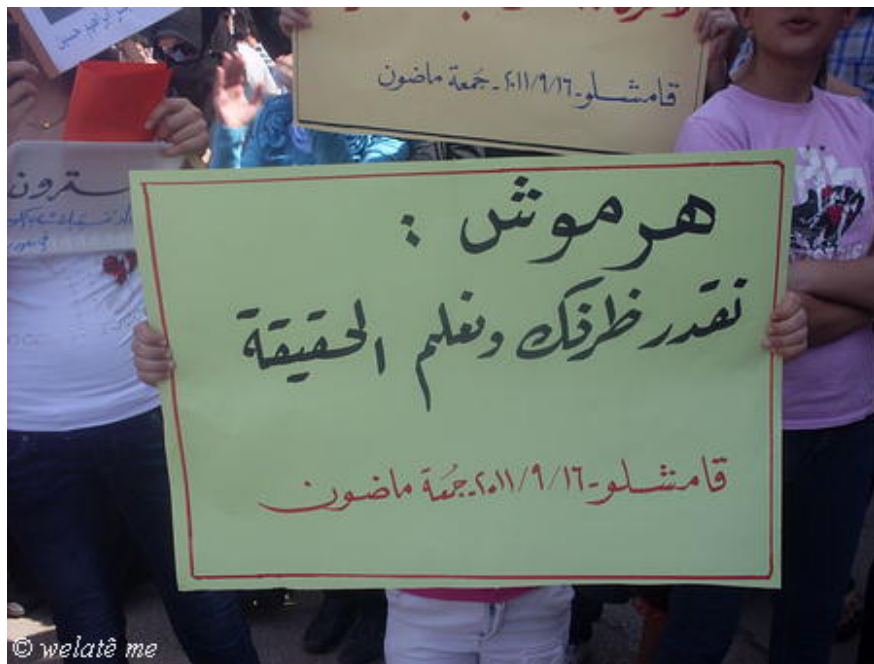 قامشلو - ٢٠١١/٩/١٦ - جُمعة ماضون
سترون
هرموش :
نقدر ظرفك ونعلم الحقيقة
قامشلو - ٢٠١١/٩/١٦ - جُمعة ماضون
© welatê me